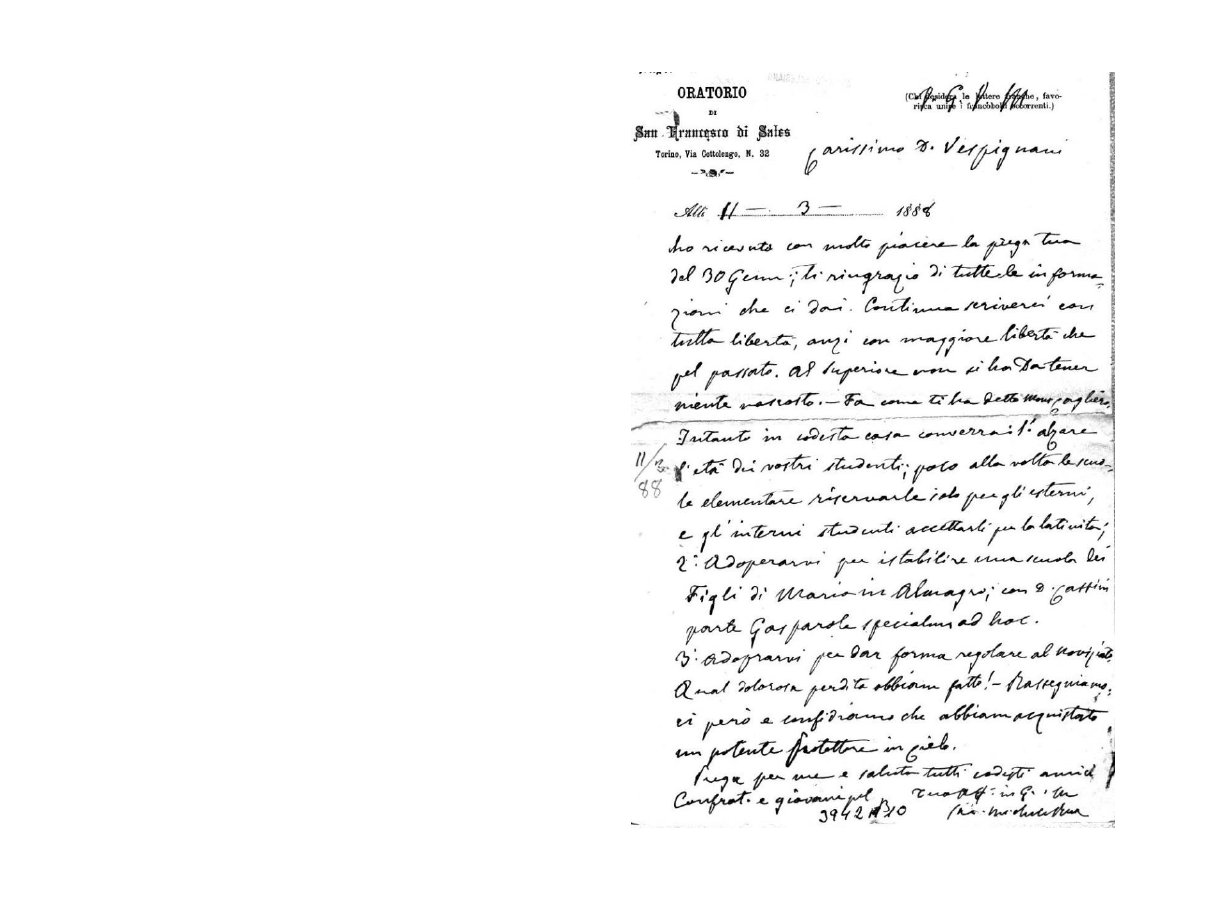 ORATORIO
DI
San Francesco di Sales
Torino, Via Cottolengo, N. 32
(Chi desidera le lettere franche, favo-
risca unire i francobolli occorrenti.)
Carissimo D. Vespignani
Alli 11 — 3 — 1888
ho ricevuto con molto piacere la preg.a tua
del 30 Genn; ti ringrazio di tutte le informa-
zioni che ci dai. Continua scriverci con
tutta libertà, anzi con maggiore libertà che
pel passato. Al Superiore non si ha da tener
niente nascosto. - Fa come ti ha detto Mons. Cagliero.
Intanto in codesta casa converrà: 1.° alzare
l'età dei vostri studenti; poco alla volta le scuo-
le elementare riservarle solo per gli esterni,
e gl'interni studenti accettarli per la latinità;
2.° Adoperarvi per istabilire una scuola dei
Figli di Maria in Almagro; con D. Cassini
parte Gasparoli specialm ad hoc.
3.° Adoprarvi per dar forma regolare al noviziato
Qual dolorosa perdita abbiam fatto! - Rassegniamo-
ci però e confidiamo che abbiam acquistato
un potente protettore in cielo.
Prega per me e saluta tutti codesti amici
Confrat. e giovani pel tuo aff. in G. e M
Sac. Michele Rua
11/3
88
3942 B 10